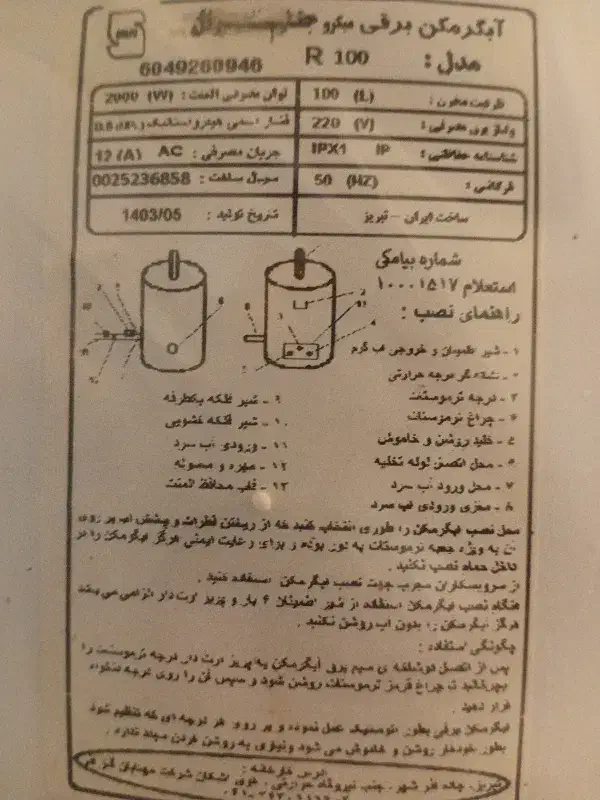 آبگرمکن برقی میکرو
مدل : R 100
6049260946
ظرفیت مخزن : 100 (L)
توان مصرفی المنت : 2000 (W)
ولتاژ برق مصرفی : 220 (V)
فشار اسمی هیدرواستاتیک
شناسنامه حفاظتی : IP IPX1
جریان مصرفی : 12 (A) AC
فرکانس : 50 (HZ)
سریال ساخت : 0025236858
ساخت ایران - تبریز
تاریخ تولید : 1403/05
شماره پیامکی
استعلام ۱۰۰۰۱۵۱۷
راهنمای نصب :
۱ - شیر اطمینان و خروجی آب گرم
۲ - نشانگر درجه حرارتی
۳ - درجه ترموستات
۴ - چراغ ترموستات
۵ - کلید روشن و خاموش
۶ - محل اتصال لوله تخلیه
۷ - محل ورود آب سرد
۸ - مجری ورودی آب سرد
۹ - شیر فلکه یکطرفه
۱۰ - شیر فلکه کشویی
۱۱ - ورودی آب سرد
۱۲ - مهره و ماسوره
۱۳ - قاب محافظ المنت
محل نصب آبگرمکن را طوری انتخاب کنید که از ریختن قطرات و پاشش آب بر روی
آن به ویژه جعبه ترموستات به دور بوده و برای رعایت ایمنی هرگز آبگرمکن را در
داخل حمام نصب نکنید .
از سرویسکاران مجرب جهت نصب آبگرمکن استفاده کنید .
هنگام نصب آبگرمکن استفاده از شیر اطمینان ۶ بار و پریز ارت دار الزامی می باشد
هرگز آبگرمکن را بدون آب روشن نکنید .
چگونگی استفاده :
پس از اتصال دوشاخه ی سیم برق آبگرمکن به پریز ارت دار درجه ترموستات را
بچرخانید تا چراغ قرمز ترموستات روشن شود و سپس آن را روی درجه دلخواه
قرار دهید .
آبگرمکن برقی بطور اتوماتیک عمل نموده و بر روی هر درجه ای که تنظیم شود
بطور خودکار روشن و خاموش می شود و نیازی به روشن کردن مجدد ندارد .
آدرس کارخانه :
تبریز، جاده آذر شهر، جنب نیروگاه حرارتی، شرکت